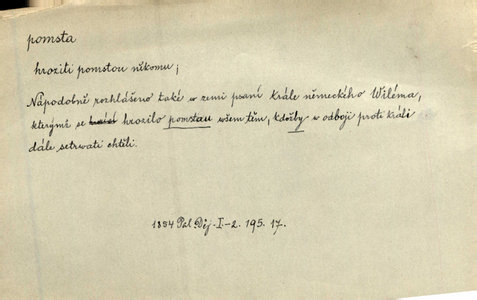 pomsta
hroziti pomstou někomu;
Nápodobně rozhlášeno také w zemi psaní krále německého Wiléma,
kterýmž se hrozilo pomstau wšem těm, kdožby w odboji proti králi
dále setrwati chtěli.
1894 Pal. Děj. I-2. 195. 17.